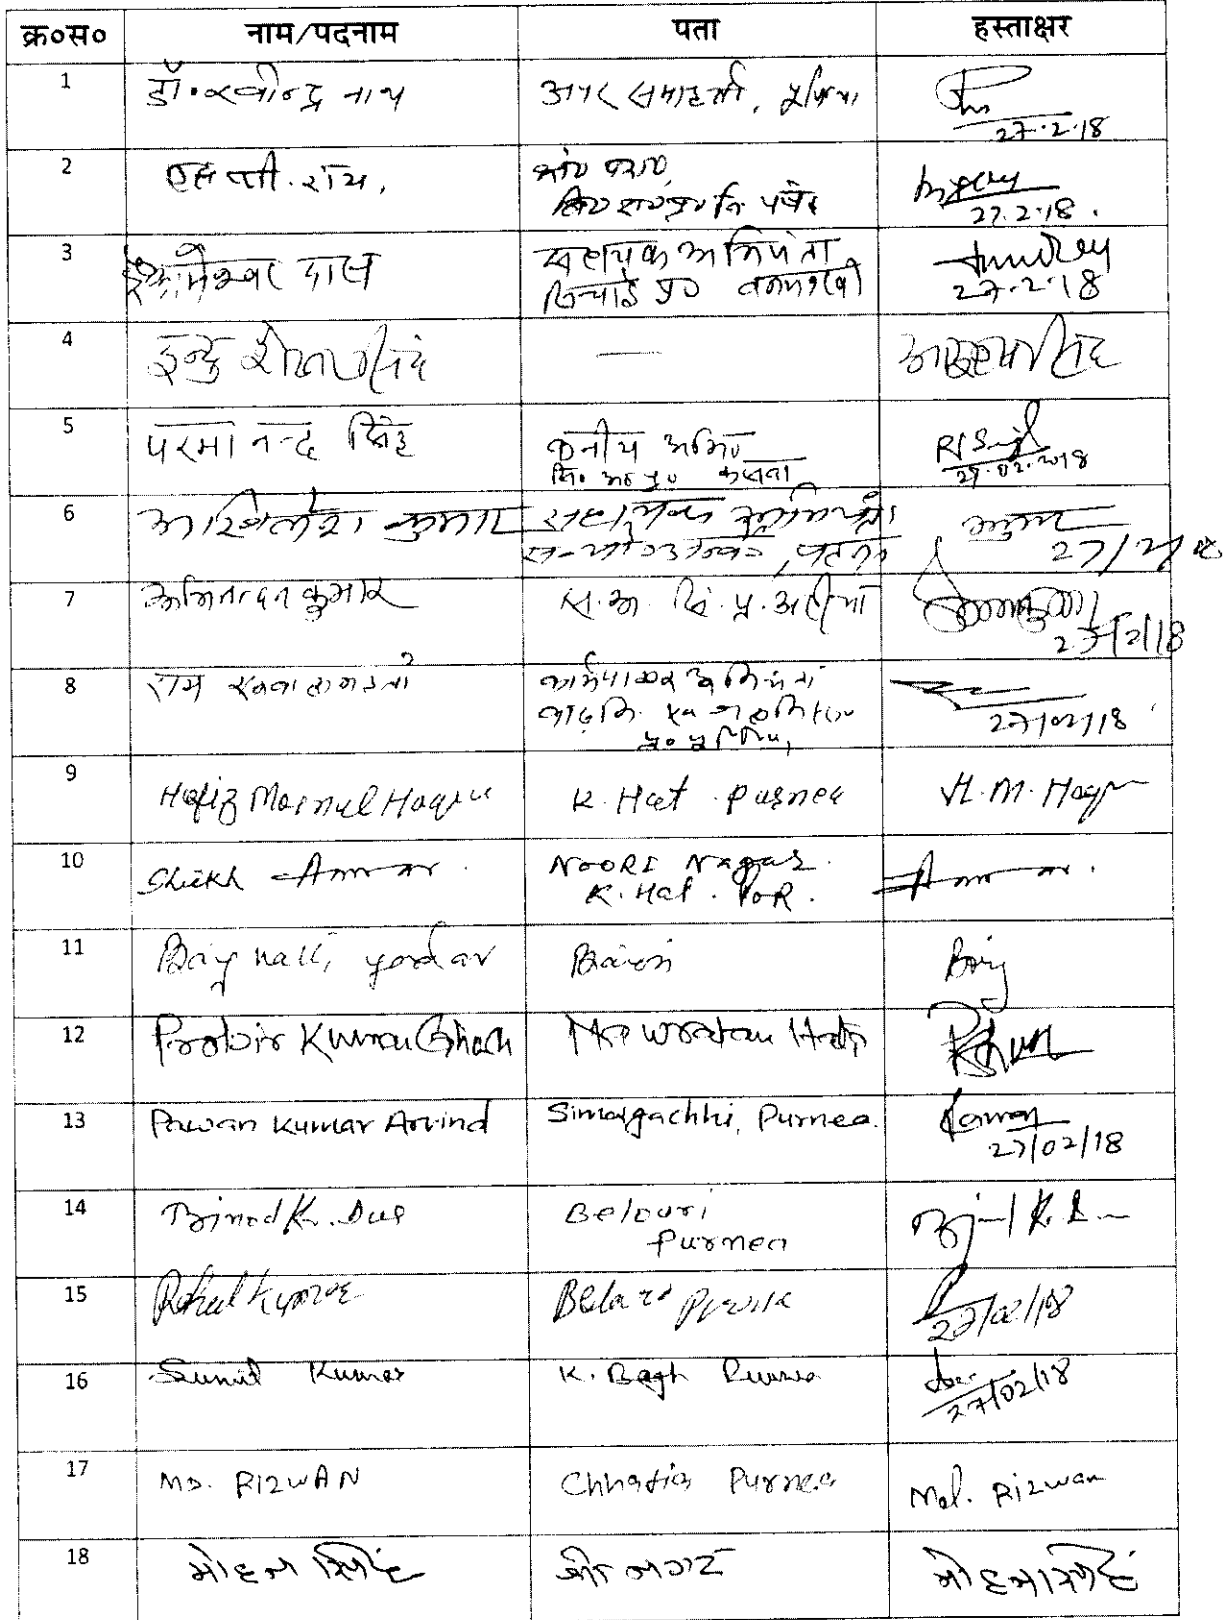 क्र०स० नाम/पदनाम पता हस्ताक्षर
1 डॉ. रवीन्द्र नाथ अपर समाहर्ता, पूर्णिया
27.2.18
2 राय,
27.2.18.
3 कामेश्वर दास सहायक अभियंता
सिंचाई प्र० बनमनखी 27.2.18
4 इन्दु शेखर सिंह —
5 परमानन्द सिंह कनीय अभि०
27.02.2018
6 अखिलेश कुमार सहायक अभियंता
27/2/18
7 अभिनन्दन कुमार स.अ. सिं. प्र.
27/2/18
8 राम कार्यपालक अभियंता
27/02/18
9 Hafiz Moinul Haque K. Hat. Purnea H. M. Haque
10 Sheikh Anwar. Noori Nagar.
K. Hat. Anwar.
11 Brij yadav Brij
12 Probir Kumar Ghosh
13 Pawan Kumar Arvind Simalgachhi, Purnea. Pawan
27/02/18
14 Binod Kr. Das Belouri
Purnea
15 Rahul Kumar
27/02/18
16 Sunil Kumar K. Bagh Purnea
27/02/18
17 MD. RIZWAN Purnea Md. Rizwan
18 मोहन सिंह श्री नगर मोहन सिंह